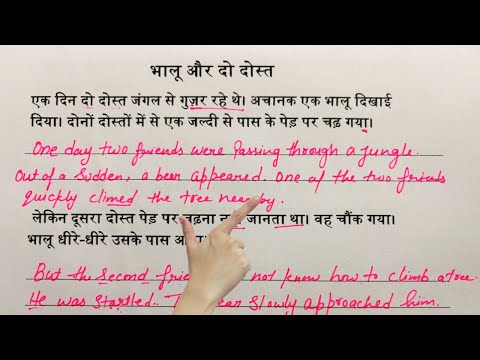 भालू और दो दोस्त
एक दिन दो दोस्त जंगल से गुज़र रहे थे। अचानक एक भालू दिखाई
दिया। दोनों दोस्तों में से एक जल्दी से पास के पेड़ पर चढ़ गया।
One day two friends were Passing through a jungle.
Out of a Sudden, a bear appeared. One of the two friends
quickly climed the tree nearby.
लेकिन दूसरा दोस्त पेड़ पर चढ़ना जानता था। वह चौंक गया।
भालू धीरे-धीरे उसके पास
But the second not know how to climb a tree.
He was startled. slowly approached him.